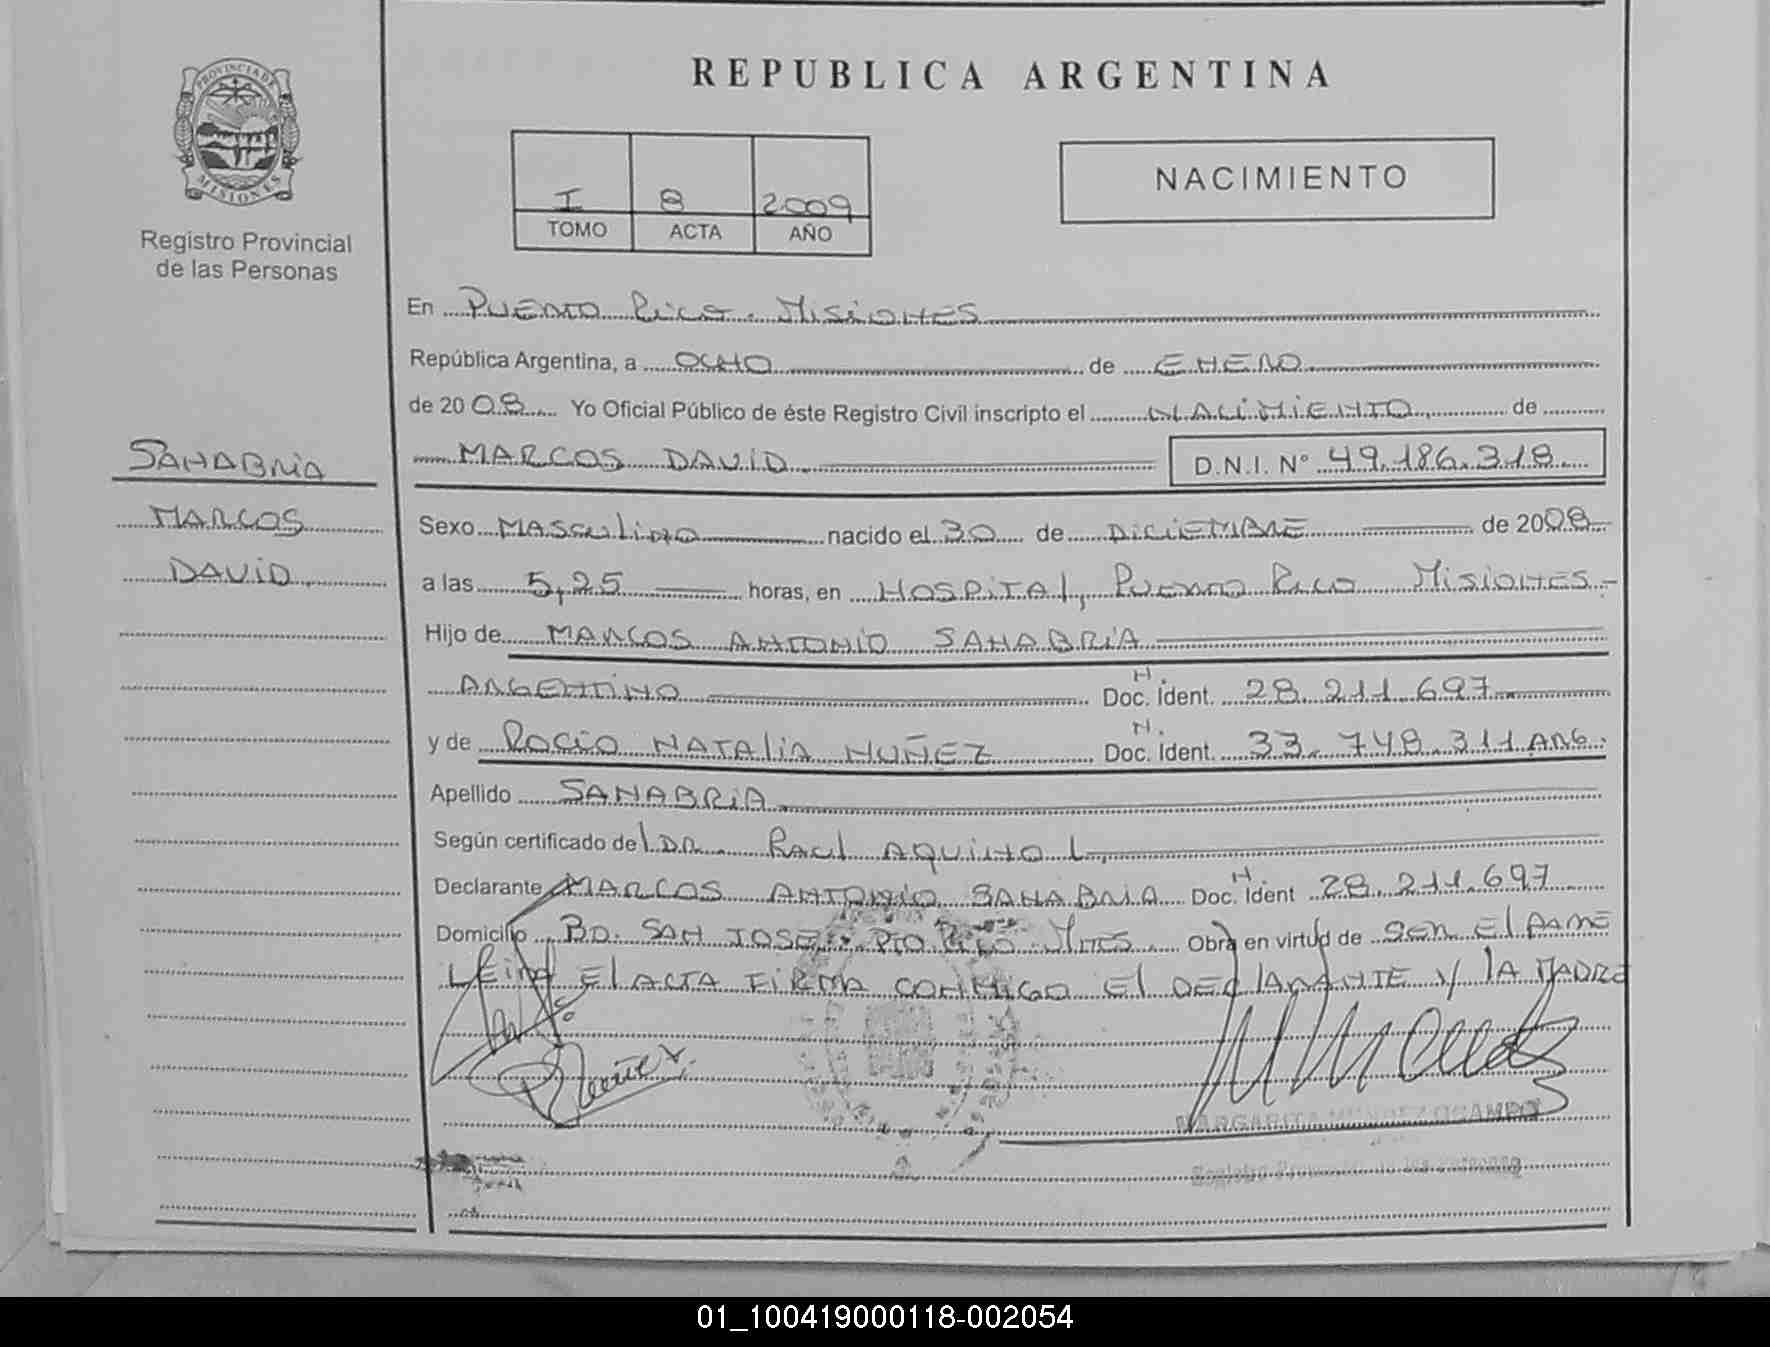 PROVINCIA DE
MISIONES
Registro Provincial
de las Personas
REPUBLICA ARGENTINA
I 8 2009
TOMO ACTA AÑO
NACIMIENTO
En Puerto Rico. Misiones
República Argentina, a OCHO de ENERO
de 2008 Yo Oficial Público de éste Registro Civil inscripto el NACIMIENTO de
MARCOS DAVID D.N.I. N° 49.186.318
SANABRIA
MARCOS
DAVID
Sexo MASCULINO nacido el 30 de DICIEMBRE de 2008
a las 5,25 horas, en HOSPITAL, Puerto Rico Misiones
Hijo de MARCOS ANTONIO SANABRIA
ARGENTINO Doc. N. Ident. 28.211.697
y de ROCIO NATALIA NUÑEZ Doc. N. Ident. 33.748.311 ARG.
Apellido SANABRIA
Según certificado del DR. RAUL AQUINO L.
Declarante MARCOS ANTONIO SANABRIA Doc. N. Ident 28.211.697
Domicilio Bo. SAN JOSE Pto Rico Mnes Obra en virtud de SER El PADRE
Leida El ACTA FIRMA CONMIGO El DECLARANTE y lA MADRE
MARGARITA MENDEZ OCAMPO
Registro Provincial de las Personas
01_100419000118-002054